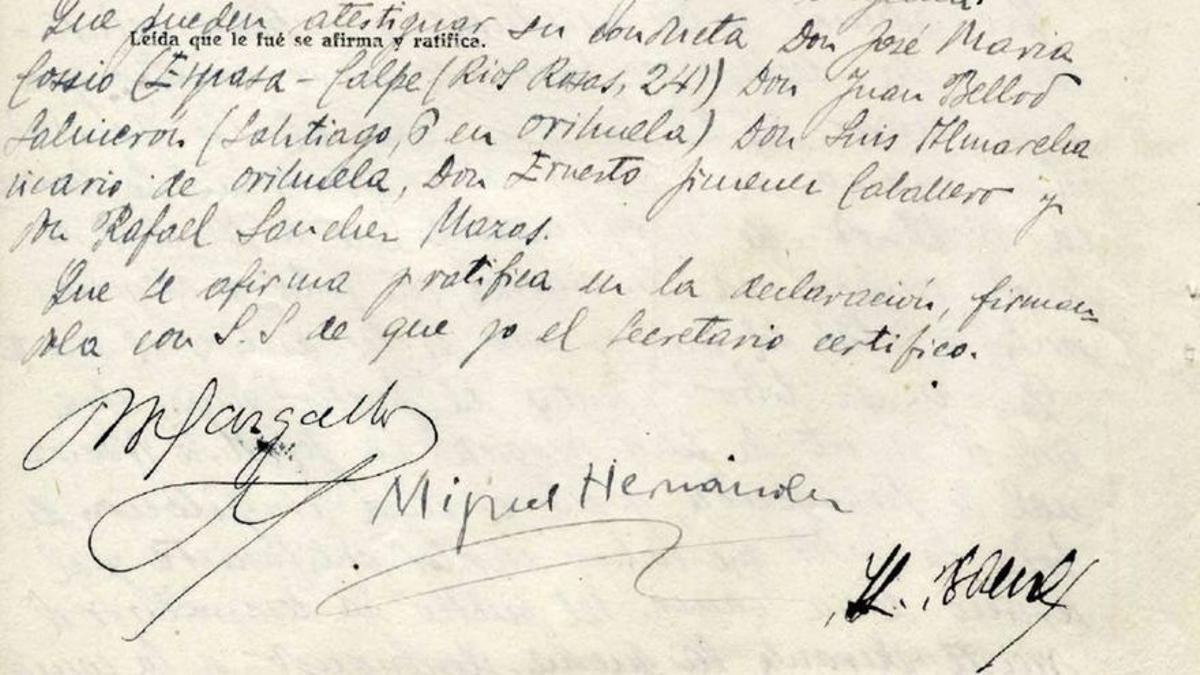 Que pueden atestiguar su conducta Don José Maria
Leída que le fué se afirma y ratifica.
Cossio (Espasa-Calpe (Rios Rosas, 24)) Don Juan Bellod
Salmerón (Santiago, 6 en Orihuela) Don Luis Almarcha
vicario de Orihuela, Don Ernesto Jimenez Caballero y
Don Rafael Sanchez Mazas.
Que se afirma y ratifica en la declaración, firman-
dola con S.S de que yo el Secretario certifico.
Miguel Hernandez